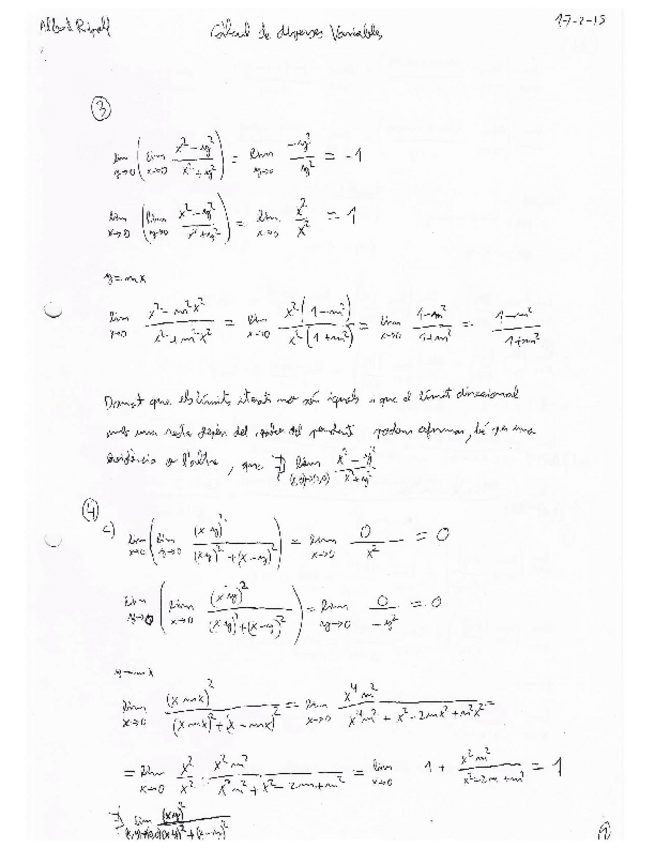 Càlcul de diverses Variables
17-2-15
③
lim y→0 ( lim x→0 (x² - y²)/(x² + y²) ) = lim y→0 -y²/y² = -1
lim x→0 ( lim y→0 (x² - y²)/(x² + y²) ) = lim x→0 x²/x² = 1
y = mx
lim x→0 (x² - m²x²)/(x² + m²x²) = lim x→0 x²(1 - m²)/x²(1 + m²) = lim x→0 (1 - m²)/(1 + m²) = (1 - m²)/(1 + m²)
Donat que els límits iterats no són iguals i que el límit direccional
una recta depèn del valor del pendent podem afirmar, per una
evidència o l'altre, que ∄ lim (x,y)→(0,0) (x² - y²)/(x² + y²)
④
c) lim x→0 ( lim y→0 (xy)²/((xy)² + (x-y)²) ) = lim x→0 0/x² = 0
lim y→0 ( lim x→0 (xy)²/((xy)² + (x-y)²) ) = lim y→0 0/-y² = 0
y = mx
lim x→0 (x mx)²/((x mx)² + (x - mx)²) = lim x→0 x⁴m²/(x⁴m² + x² - 2mx² + m²x²) =
= lim x→0 x²/x² · x²m²/(x²m² + x² - 2m + m²) = lim x→0 1 + x²m²/(x² - 2m + m²) = 1
∄ lim (x,y)→(0,0) (xy)²/((xy)² + (x-y)²)
①